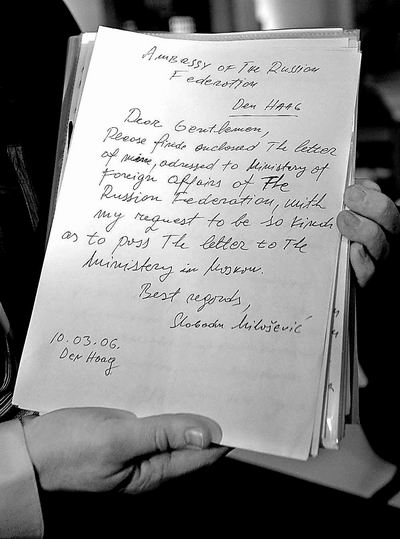 Ambassy of The Russian
Federation
Den HAAG
Dear Gentlemen,
Please finde enclosed The letter
of mine, adressed to Ministery of
Foreign Affairs of The
Russian Federation, with
my request to be so kind
as to pass The letter to The
Ministery in Moskow.
Best regards,
Slobodan Milošević
10.03.06.
Den Haag